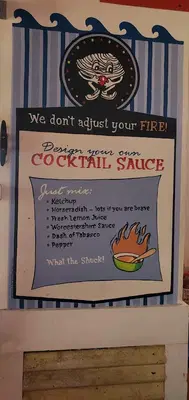 We don't adjust your FIRE!
Design your own
COCKTAIL SAUCE
Just mix:
• Ketchup
• Horseradish - lots if you are brave
• Fresh Lemon Juice
• Worcestershire Sauce
• Dash of Tabasco
• Pepper
What the Shuck!